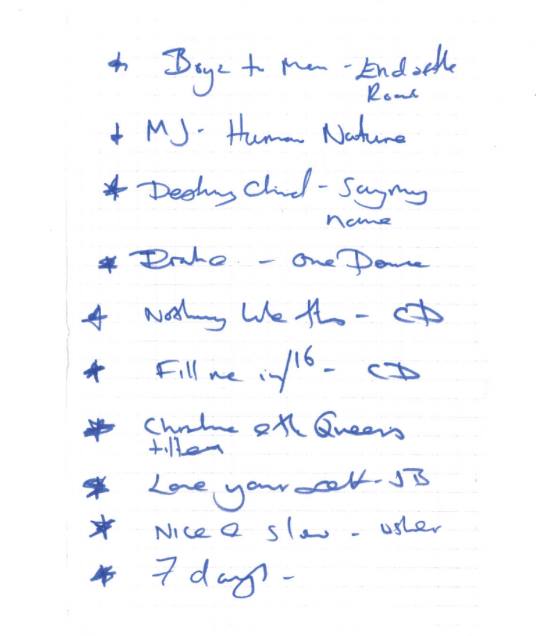 * Boyz to Men - End of the
Road
* MJ - Human Nature
* Destiny Child - Say my
name
* Drake - One Dance
* Nothing like this - CD
* Fill me in/16 - CD
* Christine & the Queens
tilted
* Love yourself - JB
* Nice & slow - usher
* 7 days -